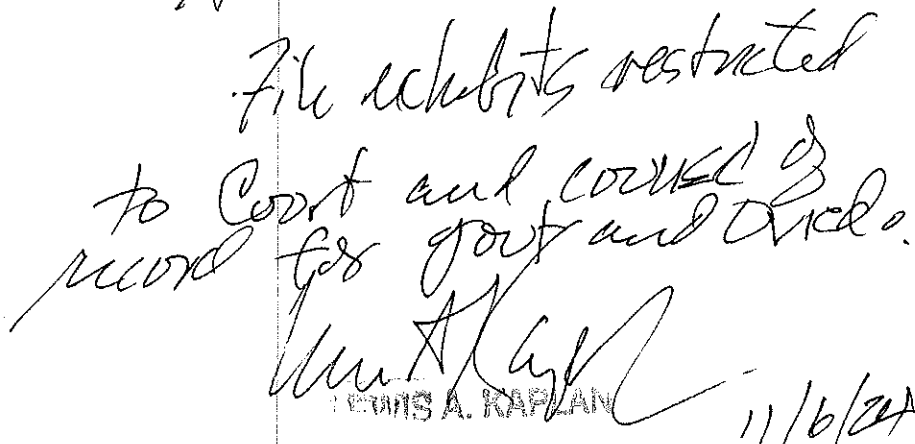 File exhibits restricted
to Court and counsel of
record for govt and Oviedo.
LEWIS A. KAPLAN
11/6/24